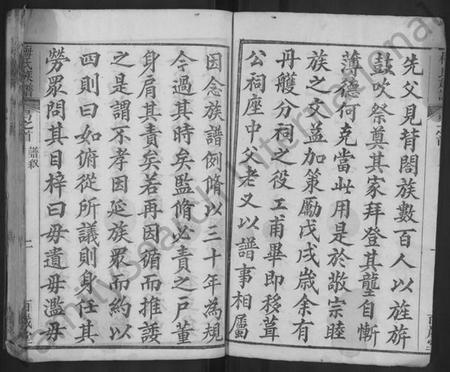 先父見背閤族數百人以旌旂
鼓吹祭奠其家拜登其壟自慚
薄德何克當此用是於敬宗睦
族之交益加策勵戊戌歲余有
丹艧分祠之役工甫畢即移葺
公祠座中父老又以譜事相屬
因念族譜例脩以三十年為規
今過其時矣監脩必責之戶董
身肩其責矣若再因循而推諉
之是謂不孝因延族眾而約以
四則曰如俯從所議則身任其
勞眾問其目梓曰毋遺毋濫毋
氏族譜
卷首
譜叙
一
FamilySearch International